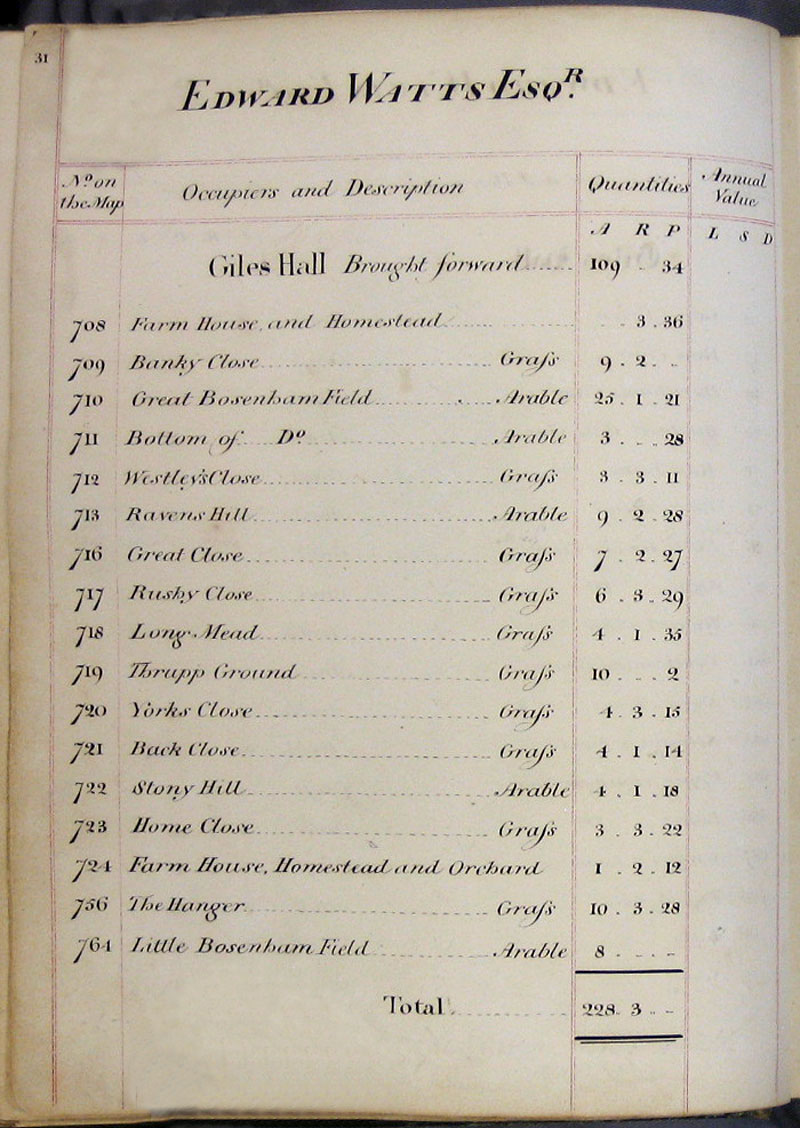 31
Edward Watts Esqr.
No. on the Map Occupiers and Description Quantities Annual Value
A R P L S D
Giles Hall Brought forward 109 - 34
708 Farm House, and Homestead - 3 . 36
709 Banky Close Grafs 9 . 2 . -
710 Great Bosenham Field Arable 25 . 1 . 21
711 Bottom of Do. Arable 3 . - . 28
712 Westley's Close Grafs 3 . 3 . 11
713 Ravens Hill Arable 9 . 2 . 28
716 Great Close Grafs 7 . 2 . 27
717 Rushy Close Grafs 6 . 3 . 29
718 Long Mead Grafs 4 . 1 . 35
719 Thrupp Ground Grafs 10 . - . 2
720 Yorks Close Grafs 4 . 3 . 15
721 Back Close Grafs 4 . 1 . 14
722 Stony Hill Arable 4 . 1 . 18
723 Home Close Grafs 3 . 3 . 22
724 Farm House, Homestead and Orchard 1 . 2 . 12
756 The Hanger Grafs 10 . 3 . 28
764 Little Bosenham Field Arable 8 . - . -
Total 228 . 3 . -